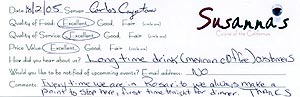 Date 18/2/05 Server Carlos Cayetano
Quality of Food Excellent Good Fair (circle one)
Quality of Service Excellent Good Fair (circle one)
Price Value Excellent Good Fair (circle one)
Susanna's
How did you hear about us? Long time drink (mexican coffee) customers
Would you like to be notified of upcoming events? E-mail address: NO
Comments: Every time we are in Rosarito we always make a
point to stop here, first time tonight for dinner. Thanks